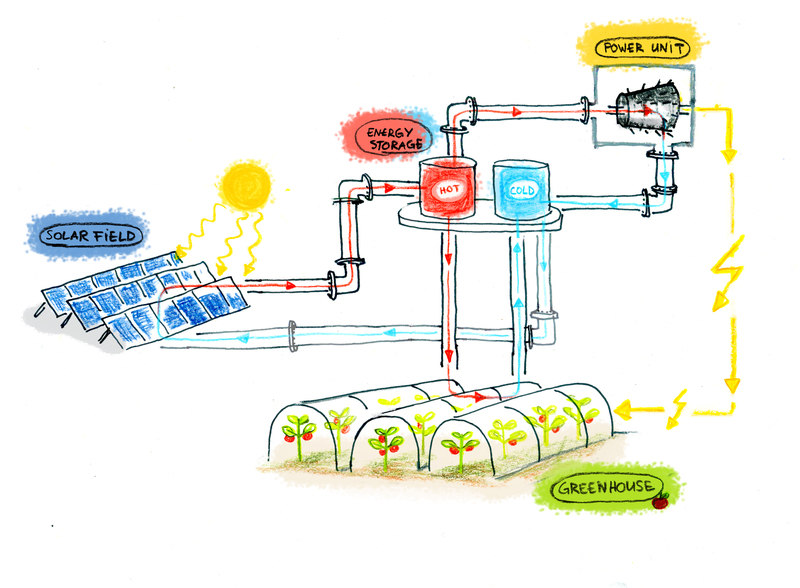 POWER UNIT
ENERGY
STORAGE
HOT
COLD
SOLAR FIELD
GREENHOUSE